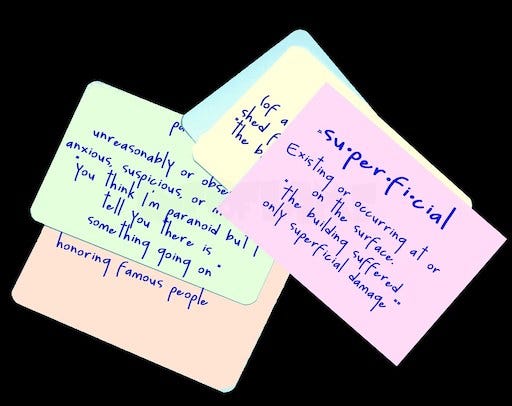 unreasonably or
anxious, suspicious, or
"You think I'm paranoid but I
tell you there is
something going on"
honoring famous people
(of a
shed
"the
"su·per·fi·cial
Existing or occurring at or
on the surface.
"the building suffered
only superficial damage""